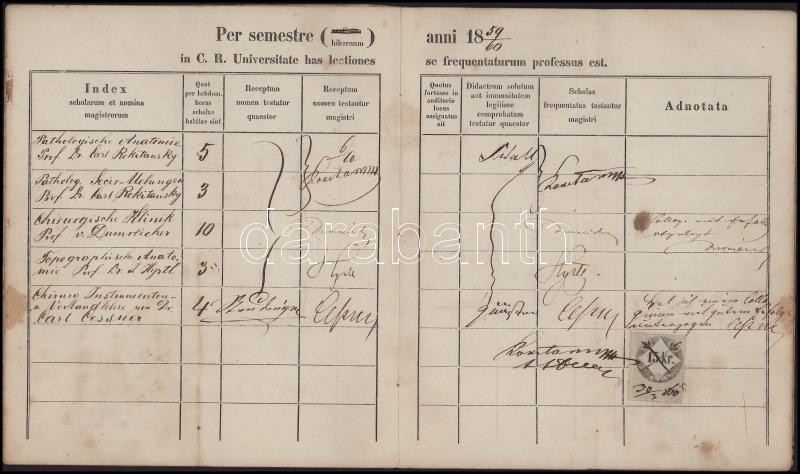 Per semestre (
hibernum )
anni 18 59/60
in C. R. Universitate has lectiones
se frequentaturum professus est.
Index
scholarum et nomina
magistrorum
Quot
per hebdom.
horas
scholae
habitae sint
Receptum
nomen testatur
quaestor
Receptum
nomen testantur
magistri
Quotus
fortasse in
auditorio
locus
assignatus
sit
Didactrum solutum
aut immunitatem
legitime
comprobatam
testatur quaestor
Scholas
frequentatas testantur
magistri
Adnotata
Pathologische Anatomie
Prof. Dr. Carl Rokitansky
5
6/60
Patholog. Secir-Uebungen
Prof. Dr. Carl Rokitansky
3
Rokitansky
Rokitansky
Chirurgische Klinik
Prof. v. Dumreicher
10
Dumreicher
Dumreicher
Topographische Anato-
mie Prof. Dr. J. Hyrtl
3
Hyrtl
Hyrtl
Chirurg. Instrumenten-
u. Verbandlehre von Dr.
Carl Cessner
4
Cessner
Cessner
Cessner
Rokitansky
15 kr.
30/3 860
darabanth